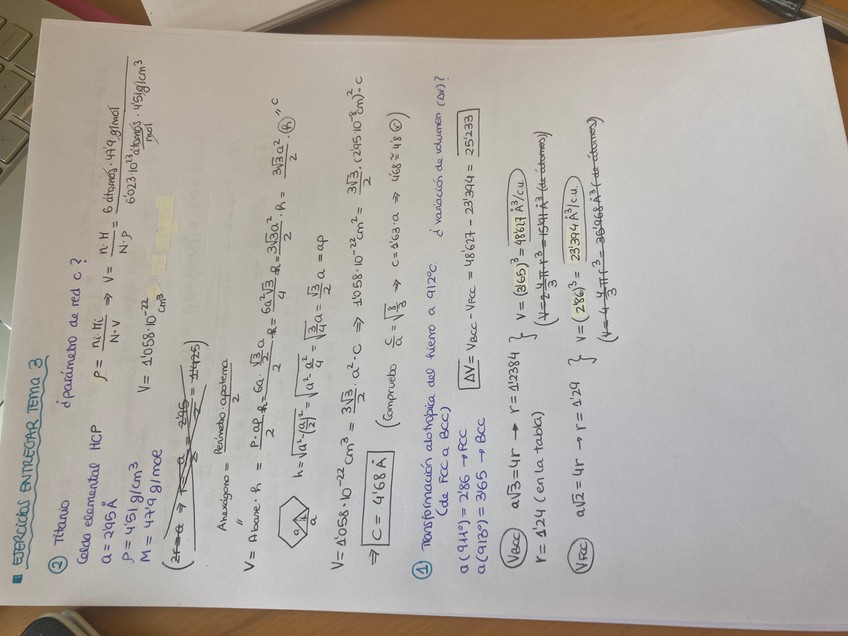 EJERCICIOS ENTREGAR TEMA 3
② Titanio ¿parámetro de red c?
Celda elemental HCP
a = 2'95 Å
ρ = 4'51 g/cm³
M = 47'9 g/mol
ρ = ni·mi / N·V ⇒ V = n·M / N·ρ = 6 átomos · 47'9 g/mol / 6'023·10²³ átomos/mol · 4'51 g/cm³
V = 1'058·10⁻²² cm³
(2r = a ⇒ r = a/2 = 2'95/2 = 1'425)
A hexágono = Perímetro·apotema / 2
V = A base · h = P·ap/2 · h = 6a · √3/2 a / 2 · h = 6a²√3/4 · h = 3√3a²/2 · h = 3√3a²/2 · h " c
a h a
h = √a²-(a/2)² = √a²-a²/4 = √3/4 a² = √3/2 a = ap
V = 1'058·10⁻²² cm³ = 3√3/2 · a² · c ⇒ 1'058·10⁻²² cm² = 3√3/2 · (2'95·10⁻⁸ cm)² · c
⇒ C = 4'68 Å (Compruebo c/a = √8/3 ⇒ c = 1'63·a ⇒ 4'68 ≃ 4'8 ✓)
① Transformación alotrópica del hierro a 912ºC. ¿variación de volumen (ΔV)?
(de FCC a BCC)
a (911º) = 2'86 → FCC
a (913º) = 3'65 → BCC
ΔV = V BCC - V FCC = 48'627 - 23'394 = 25'233
V BCC a√3 = 4r → r = 1'2384 } V = (3'65)³ = 48'627 Å³/c.u.
r = 1'24 (en la tabla) (V = 2 4/3 π r³ = 15'91 Å³ (de átomos))
V FCC a√2 = 4r → r = 1'29 } V = (2'86)³ = 23'394 Å³/c.u.
(V = 4 · 4/3 π r³ = 35'968 Å³ (de átomos))